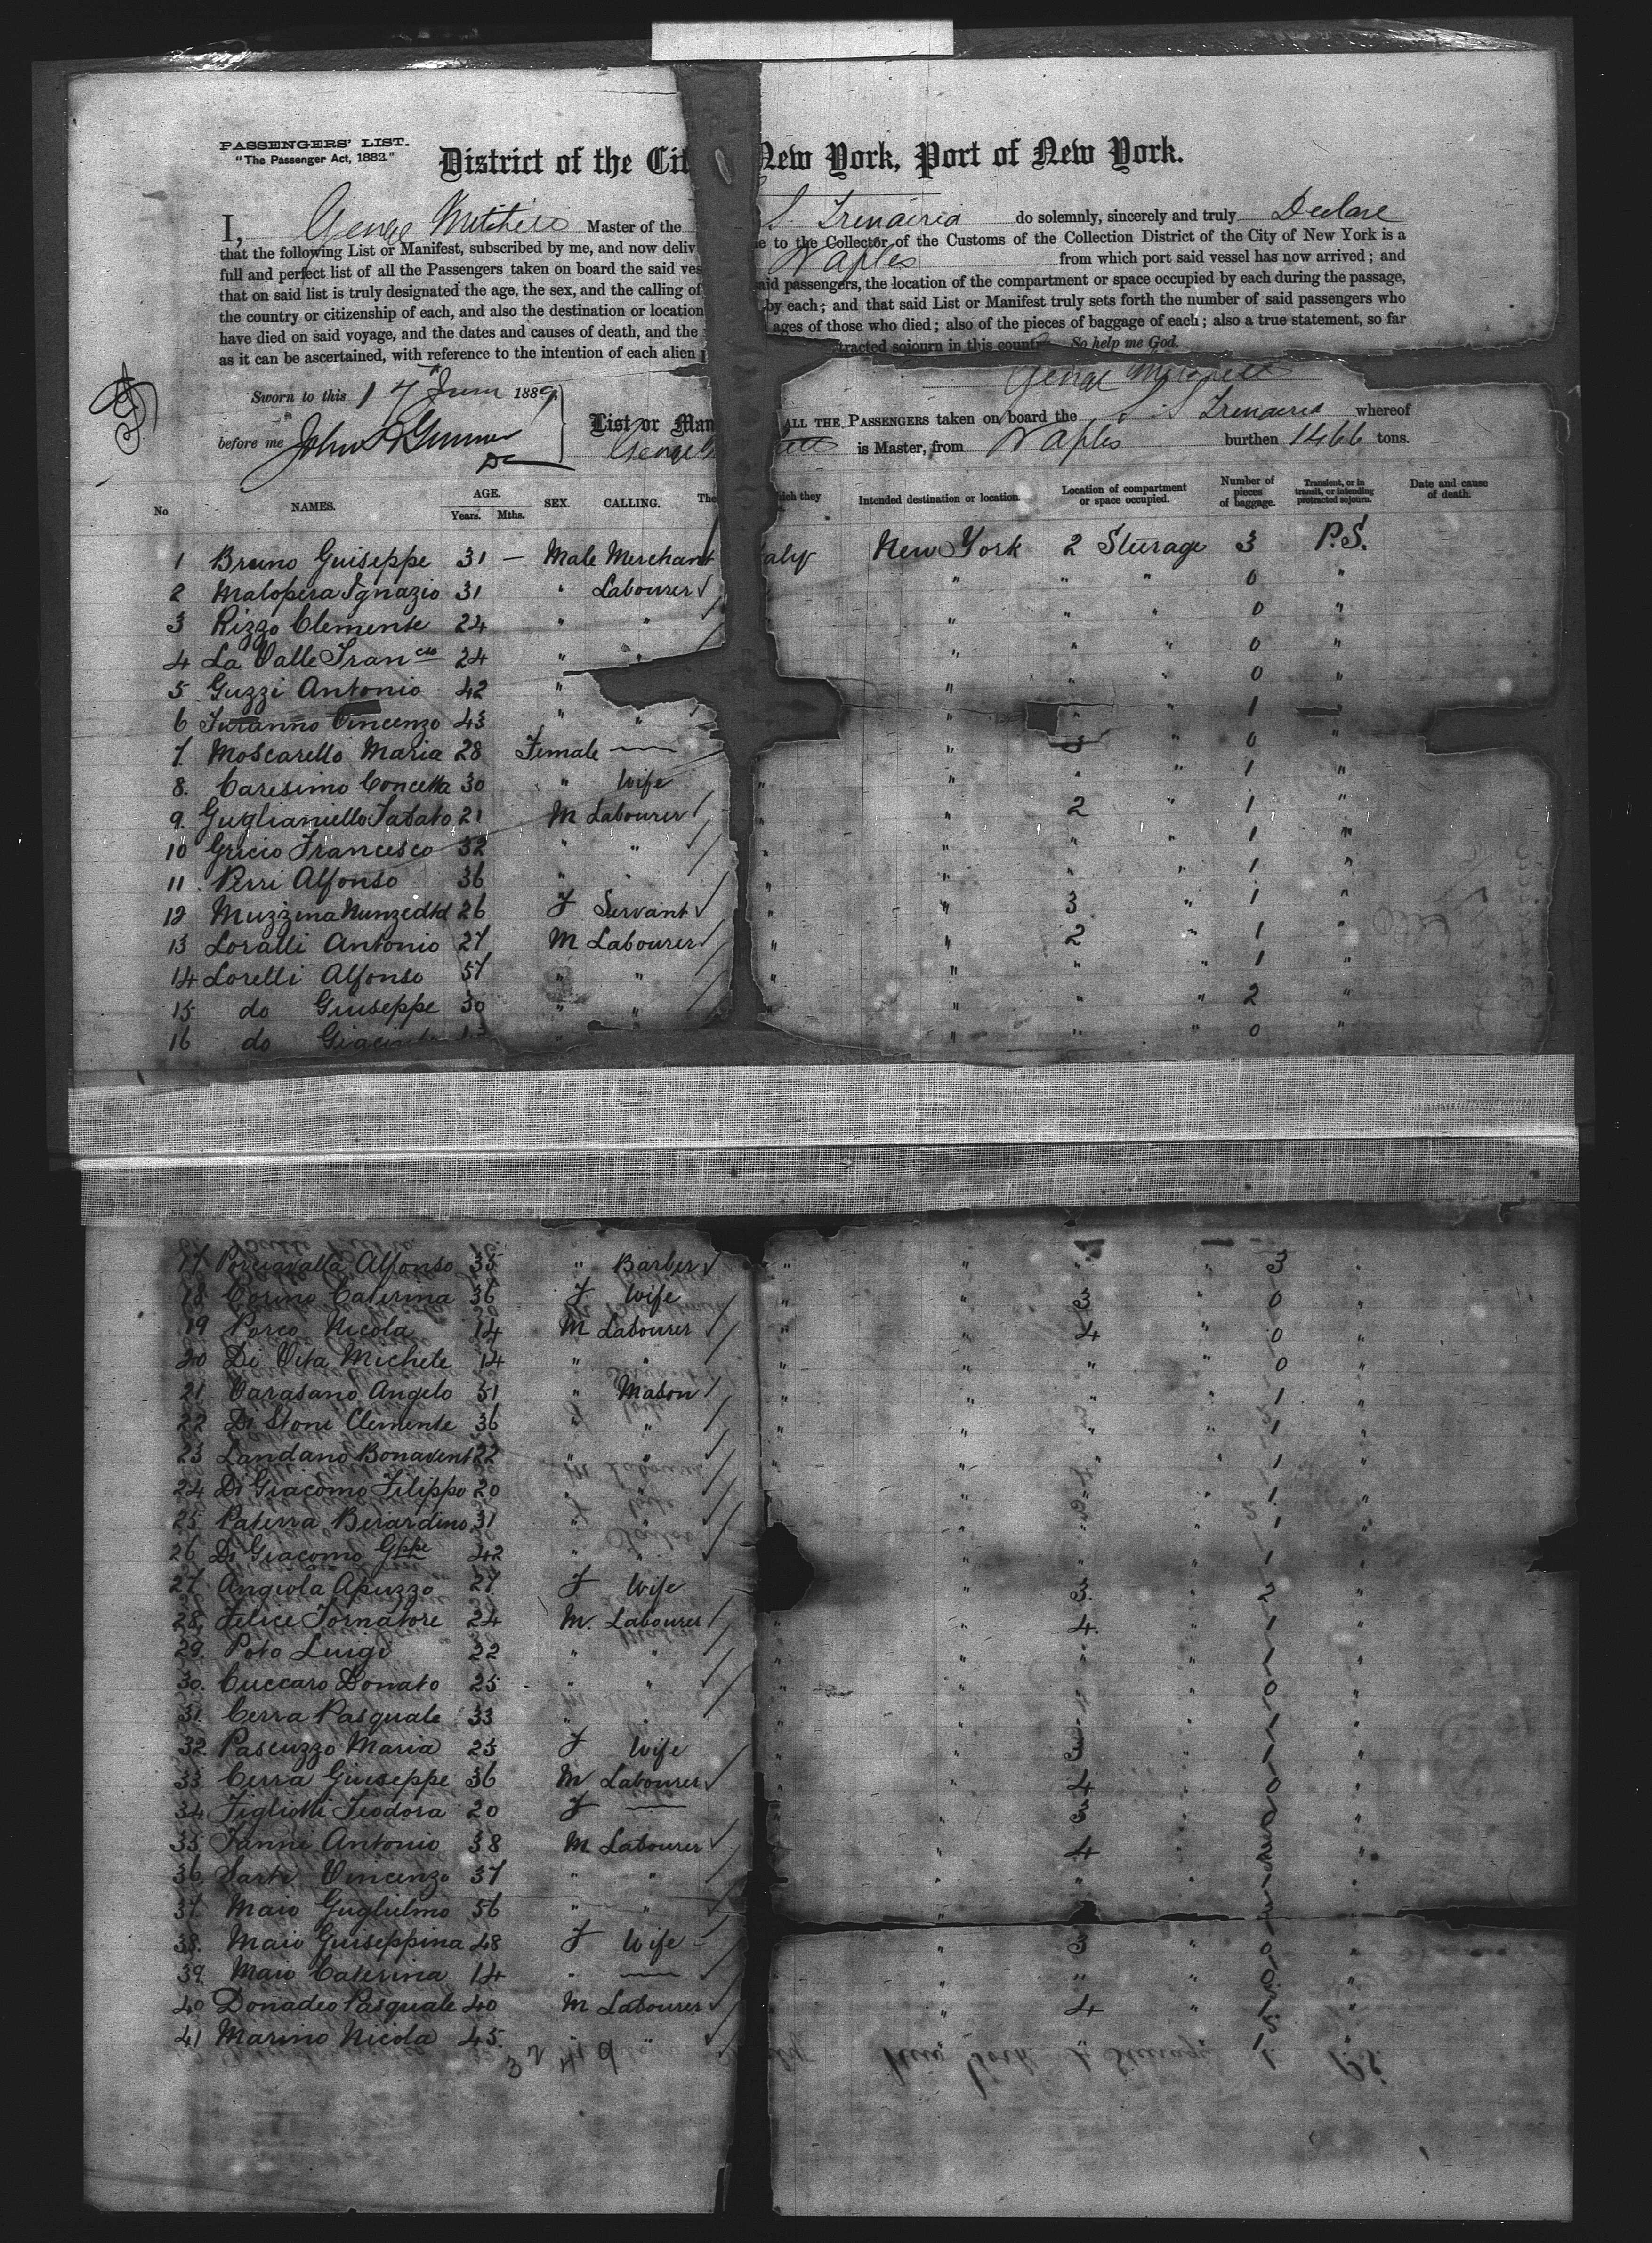 PASSENGERS' LIST.
"The Passenger Act, 1882."
District of the Cit New York, Port of New York.
I, George Mitchell Master of the S. Trinacria do solemnly, sincerely and truly Declare
that the following List or Manifest, subscribed by me, and now deliv e to the Collector of the Customs of the Collection District of the City of New York is a
full and perfect list of all the Passengers taken on board the said ves Naples from which port said vessel has now arrived; and
that on said list is truly designated the age, the sex, and the calling of aid passengers, the location of the compartment or space occupied by each during the passage,
the country or citizenship of each, and also the destination or location by each; and that said List or Manifest truly sets forth the number of said passengers who
have died on said voyage, and the dates and causes of death, and the ages of those who died; also of the pieces of baggage of each; also a true statement, so far
as it can be ascertained, with reference to the intention of each alien tracted sojourn in this country So help me God.
George Mitchell
Sworn to this 17 June 1889
List or Man ALL THE PASSENGERS taken on board the S.S Trinacria whereof
before me John Gunner
George is Master, from Naples burthen 1466 tons.
No NAMES. AGE. Years. Mths. SEX. CALLING. The ich they Intended destination or location. Location of compartment or space occupied. Number of pieces of baggage. Transient, or in transit, or intending protracted sojourn. Date and cause of death.
1 Bruno Guiseppe 31 — Male Merchant aly New York 2 Sturage 3 P.S.
2 Malopera Ignazio 31 " Labourer " " " 0 "
3 Rizzo Clemente 24 " " " " " 0 "
4 La Valle Francco 24 " " " " " 0 "
5 Guzzi Antonio 42 " " " " 0 "
6 Turanno Vincenzo 43 " " " " " 1
7. Moscarello Maria 28 Female — " 3 " 0 "
8. Caresimo Concetta 30 " Wife " " " " 1 "
9. Guglianiello Sabato 21 M Labourer " " 2 1 "
10 Gricio Francesco 32 " " " " " " 1 "
11. Perri Alfonso 36 " " " " " 1 "
12 Muzzina Nunzedtd 26 F Servant " " 3 " 1 "
13 Loralli Antonio 27 M Labourer " " 2 " 1 "
14 Lorelli Alfonso 57 " " " " " " 1 "
15 do Giuseppe 30 " " " " " 2 "
16 do Giacinto " " " 0 "
17 Alfonso 35 " Barber " " " 3
18 Corino Caterina 36 F Wife " " 3 " 0 "
19 Porco Nicola 14 M Labourer " " 4 " 0 "
20 Di Vita Michele 14 " " " " " " 0 "
21 Varasano Angelo 51 " Mason " " " " 1 "
22 Di Stone Clemente 36 " " " " " " 1 "
23 Landano Bonavent 22 " " " " " 1 "
24 Di Giacomo Filippo 20 " " " " " 1 "
25 Paterra Berardino 31 " " " " 1 "
26 Di Giacomo Gppe 42 " " " " " 1 "
27. Angiola Apuzzo 27. F Wife " 3. " 2 "
28. Felice Tornatore 24 M. Labourer " " 4. " 1 "
29. Poto Luigi 22 " " " " " 1 "
30. Cuccaro Donato 25 " " " " " " 0 "
31. Cerra Pasquale 33 " " " " " " 1 "
32. Pascuzzo Maria 25 F Wife " " 3 " 1 "
33. Cerra Giuseppe 36 M Labourer " " 4 " 0 "
34 Figliotti Teodora 20 F — " 3 " 0 "
35. Ianni Antonio 38 M Labourer " " 4 " "
36. Sarti Vincenzo 37 " " " " " " 1 "
37. Maio Guglielmo 56 " " "
38. Maio Guiseppina 48 F Wife " 3 " 0 "
39. Maio Caterina 14 " — " " " 0 "
40 Donadeo Pasquale 40 M Labourer " " 4 " 1 "
41 Marino Nicola 45. " " " " 1 "